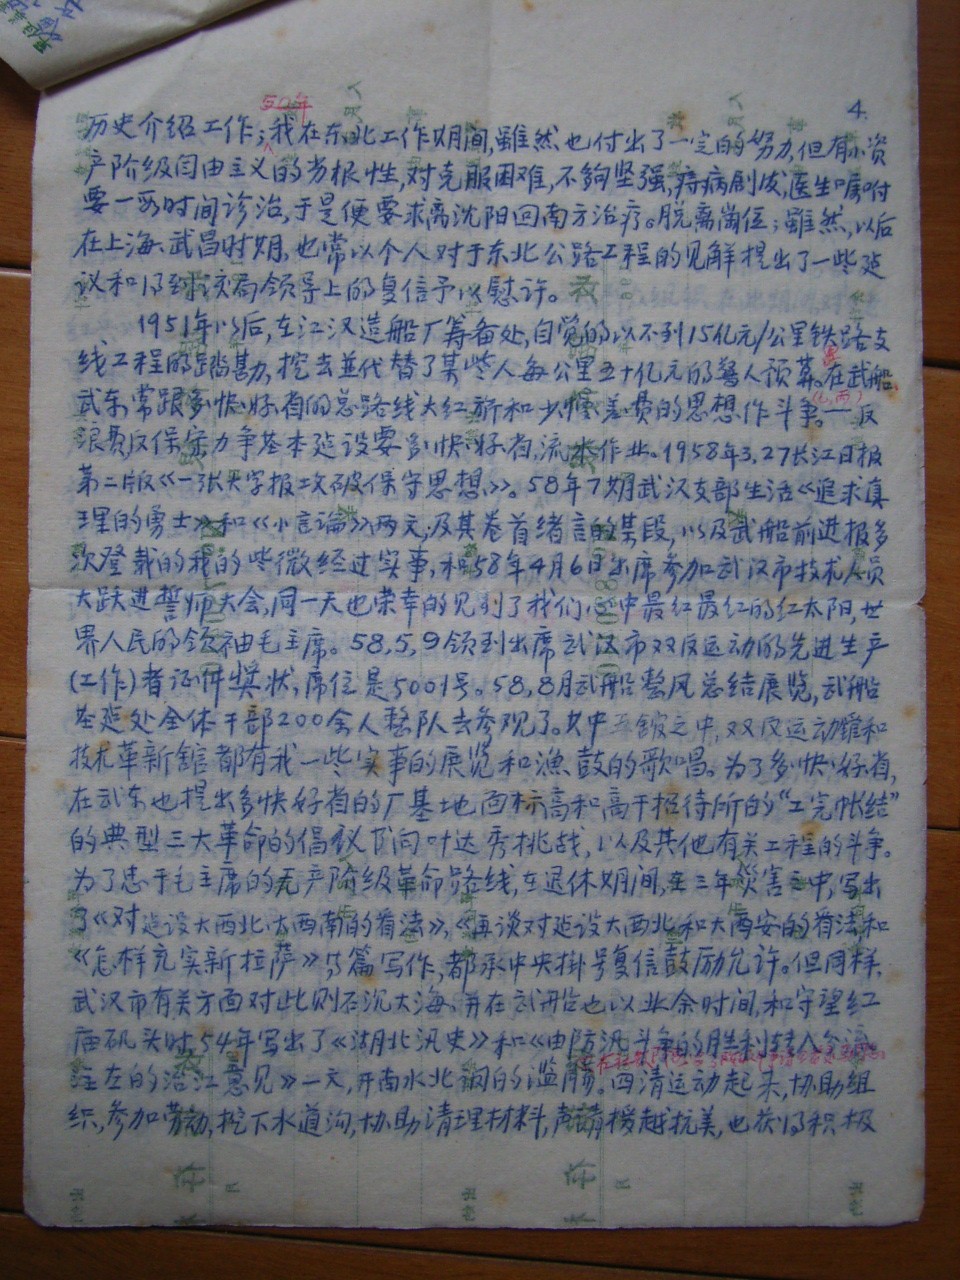 4.
50年
历史介绍工作；我在东北工作期间，虽然也付出了一定的努力，但有小资
产阶级自由主义的劣根性，对克服困难，不够坚强，痔病剧发，医生嘱咐
要一些时间诊治，于是便要求离沈阳回南方治疗。脱离岗位；虽然，以后
在上海、武昌时期，也常以个人对于东北公路工程的见解提出了一些建
议和得到该局领导上的复信予以慰许。
1951年以后，在江汉造船厂筹备处，自觉的以不到15亿元/公里铁路支
线工程的踏勘，挖去並代替了某些人每公里五十亿元的惊人预算。在武船、
武东常跟多快好省的总路线大红旗和少慢差费的思想作斗争。一反
浪费反保守力争基本建设要多快好省，流水作业。1958年3.27长江日报
第二版《一张大字报攻破保守思想》。58年7期武汉支部生活《追求真
理的勇士》和《小言论》两文，及其卷首绪言的某段，以及武船前进报多
次登载的我的些微经过实事，和58年4月6日出席参加武汉市技术人员
大跃进誓师大会，同一天也荣幸的见到了我们心中最红最红的红太阳，世
界人民的领袖毛主席。58,5,9领到出席武汉市双反运动的先进生产
(工作)者证件奖状，席位是5001号。58,8月武船整风总结展览，武船
基建处全体干部200余人整队去参观了。其中三馆之中，双反运动馆和
技术革新舘都有我一些实事的展览和渔鼓的歌唱。为了多快好省，
在武东也提出多快好省的厂基地面标高和高干招待所的“工完帐结”
的典型三大革命的倡议下向叶达秀挑战，以及其他有关工程的斗争。
为了忠于毛主席的无产阶级革命路线，在退休期间，在三年灾害之中，写出
了《对建设大西北大西南的看法》，《再谈对建设大西北和大西安的看法和
《怎样充实新拉萨》等篇写作，都承中央掛号复信鼓励允许。但同样，
武汉市有关方面对此则石沉大海。并在武船也以业余时间，和守望红
庙矶头时，54年写出了《湖北汛史》和《由防汛斗争的胜利转入
注在的沿江意见》一文，开南水北调的滥觞。四清运动起来，协助组
织，参加劳动，挖下水道沟，协助清理材料，声请援越抗美，也获得积极